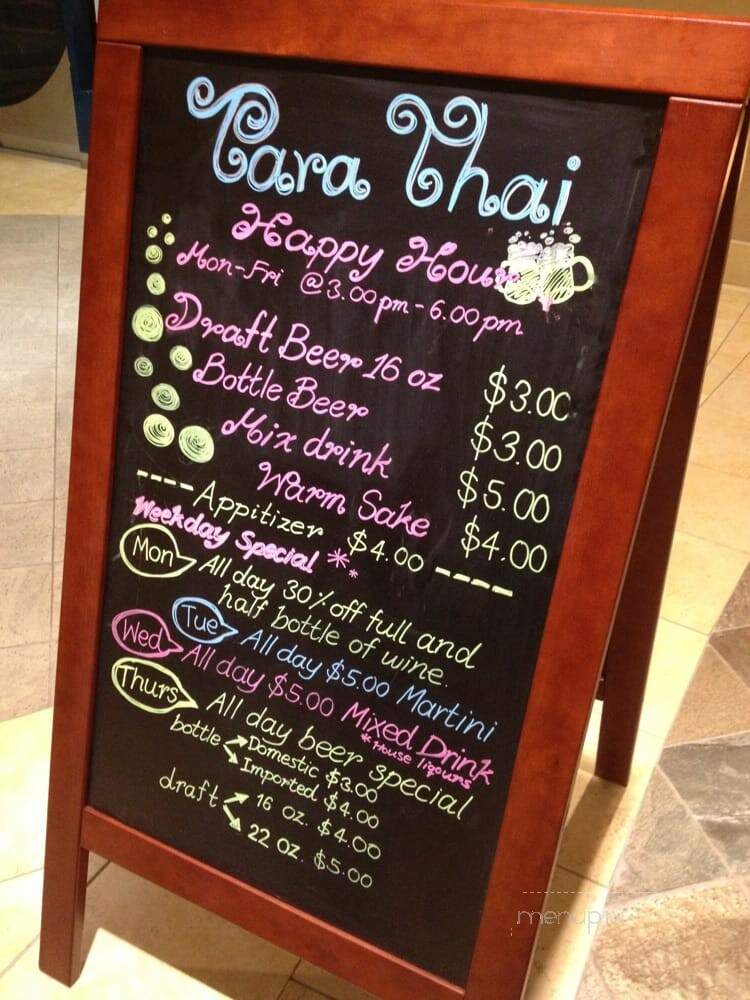 Tara Thai
Happy Hour
Mon-Fri @3.00pm - 6.00pm
Draft Beer 16 oz $3.00
Bottle Beer $3.00
Mix drink $5.00
Warm Sake $4.00
---- Appitizer $4.00 ----
Weekday Special **
Mon All day 30% off full and
half bottle of wine.
Tue All day $5.00 Martini
Wed All day $5.00 Mixed Drink
*House liqours
Thurs All day beer special
bottle Domestic $3.00
Imported $4.00
draft 16 oz. $4.00
22 oz. $5.00